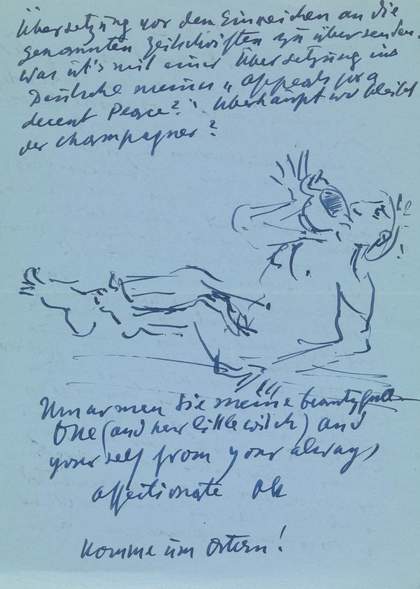 Übersetzung vor dem Einreichen an die
genannten Zeitschriften zu übersenden.
Was ist's mit einer Übersetzung ins
Deutsche meines „appeals for a
decent Peace?" Überhaupt wo bleibt
der Champagner?
Umarmen Sie meine beautyfull
One (and her little witch) and
yourself from your always
affectionate OK
Komme um Ostern!